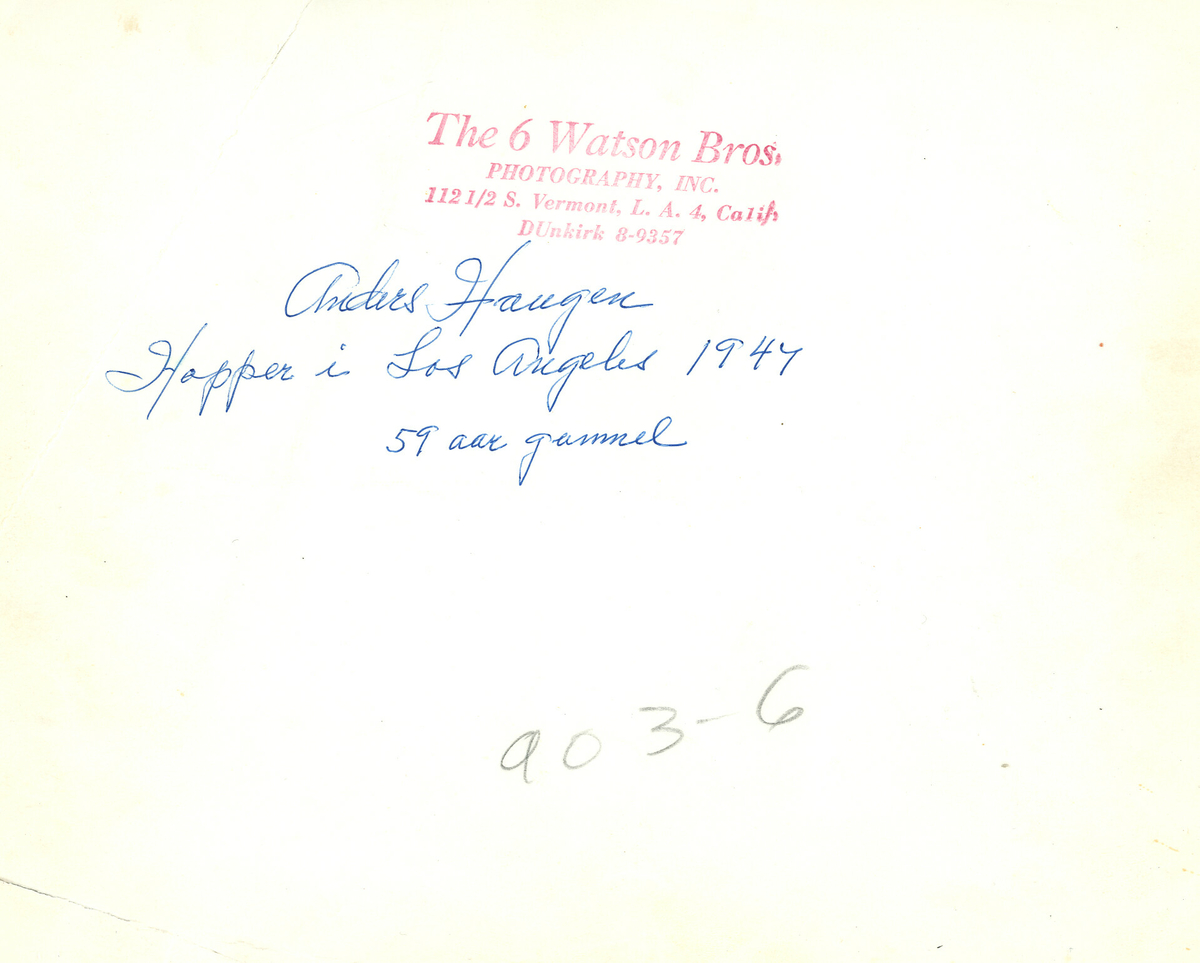 The 6 Watson Bros.
PHOTOGRAPHY, INC.
112 1/2 S. Vermont, L. A. 4, Calif.
DUnkirk 8-9357
Anders Haugen
Hopper i Los Angeles 1947
59 aar gammel
903-6